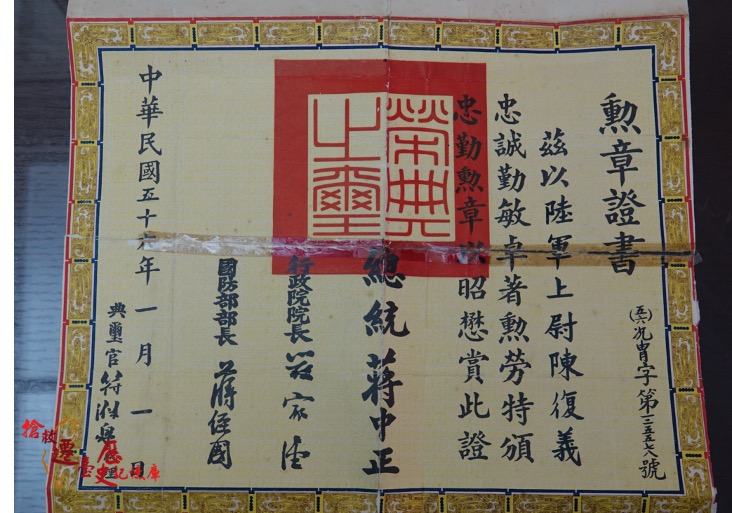 勳章證書
(五六)況胄字第一三五五七八號
茲以陸軍上尉陳復義
忠誠勤敏卓著勲勞特頒
忠勤勲章以昭懋賞此證
榮典
之璽
總統 蔣中正
行政院院長 嚴家淦
國防部部長 蔣經國
中華民國五十六年一月一日
典璽官
搶救遷臺歷史記憶庫